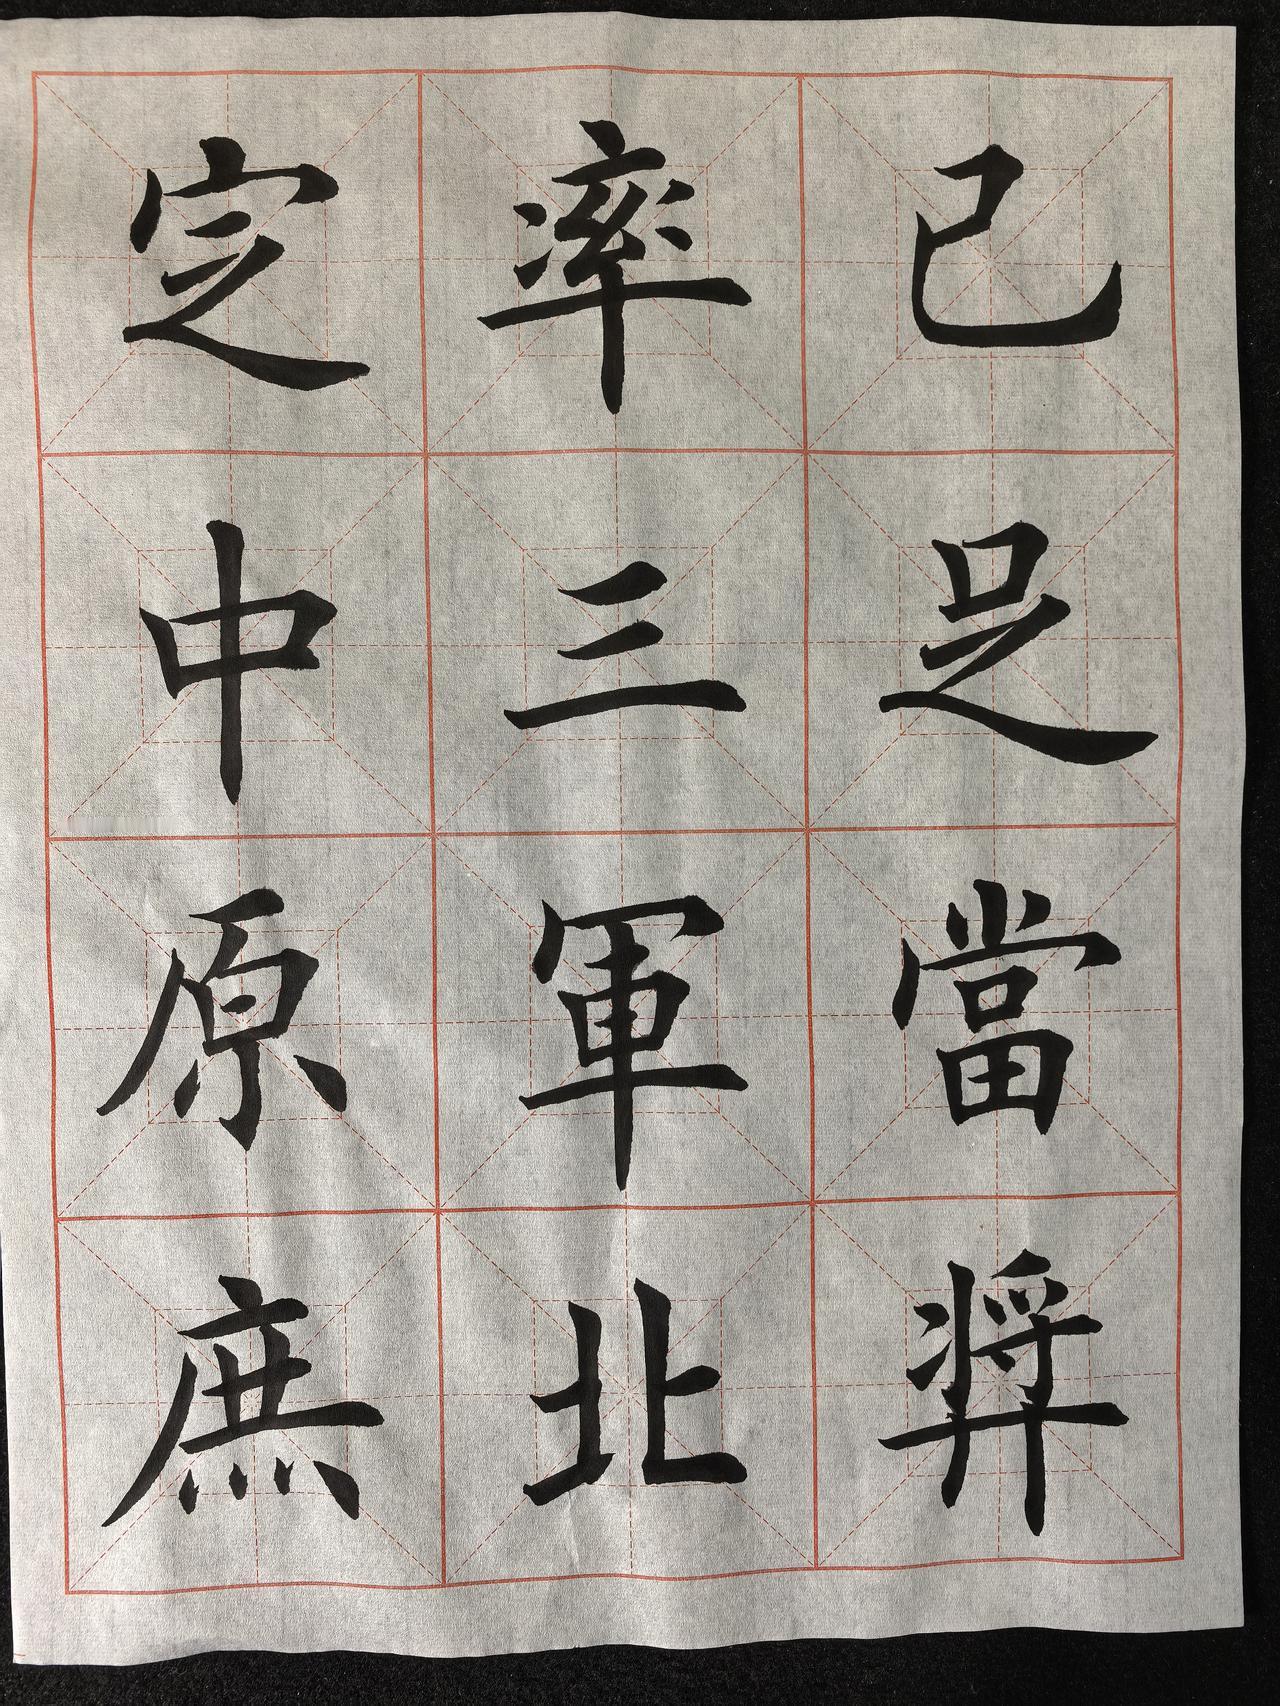 已足當奨
率三軍北
定中原庶